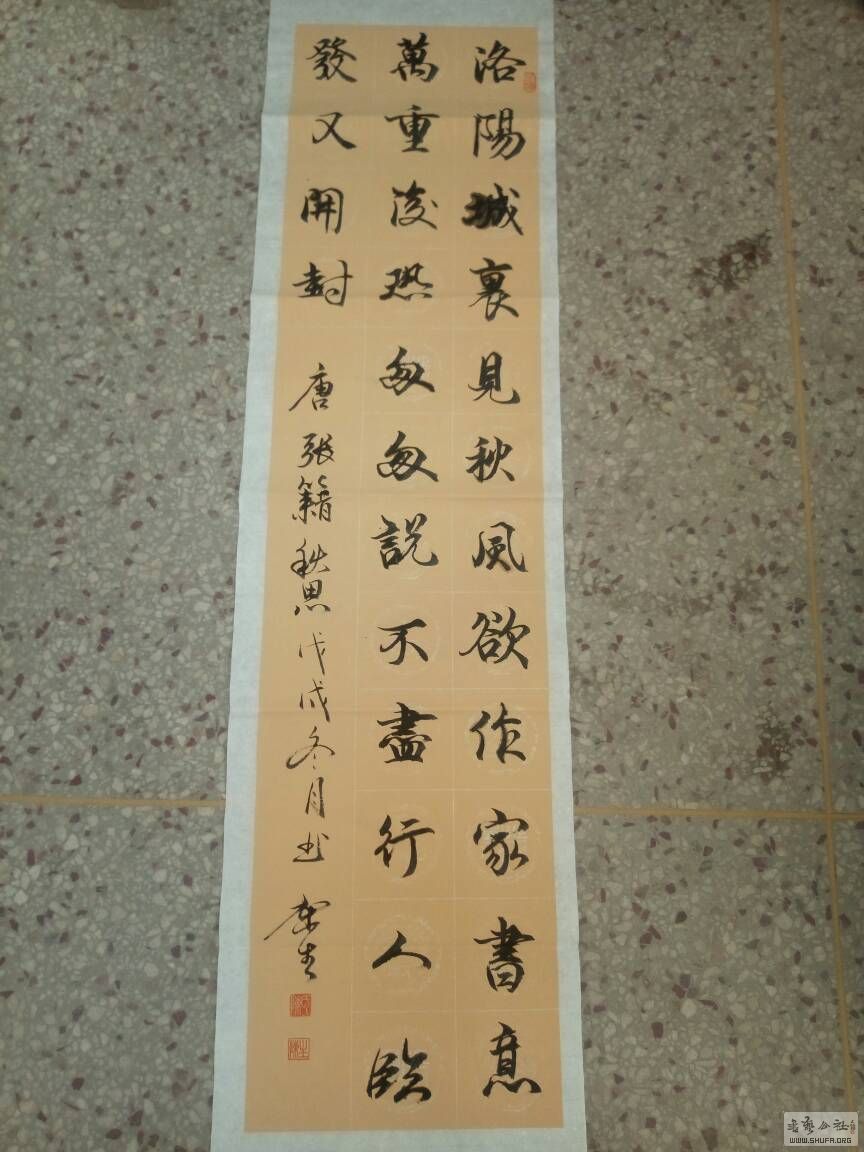 洛陽城裏見秋風欲作家書意
萬重復恐匆匆說不盡行人臨
發又開封 唐張籍秋思戊戌冬月书
书艺公社
WWW.SHUFA.ORG